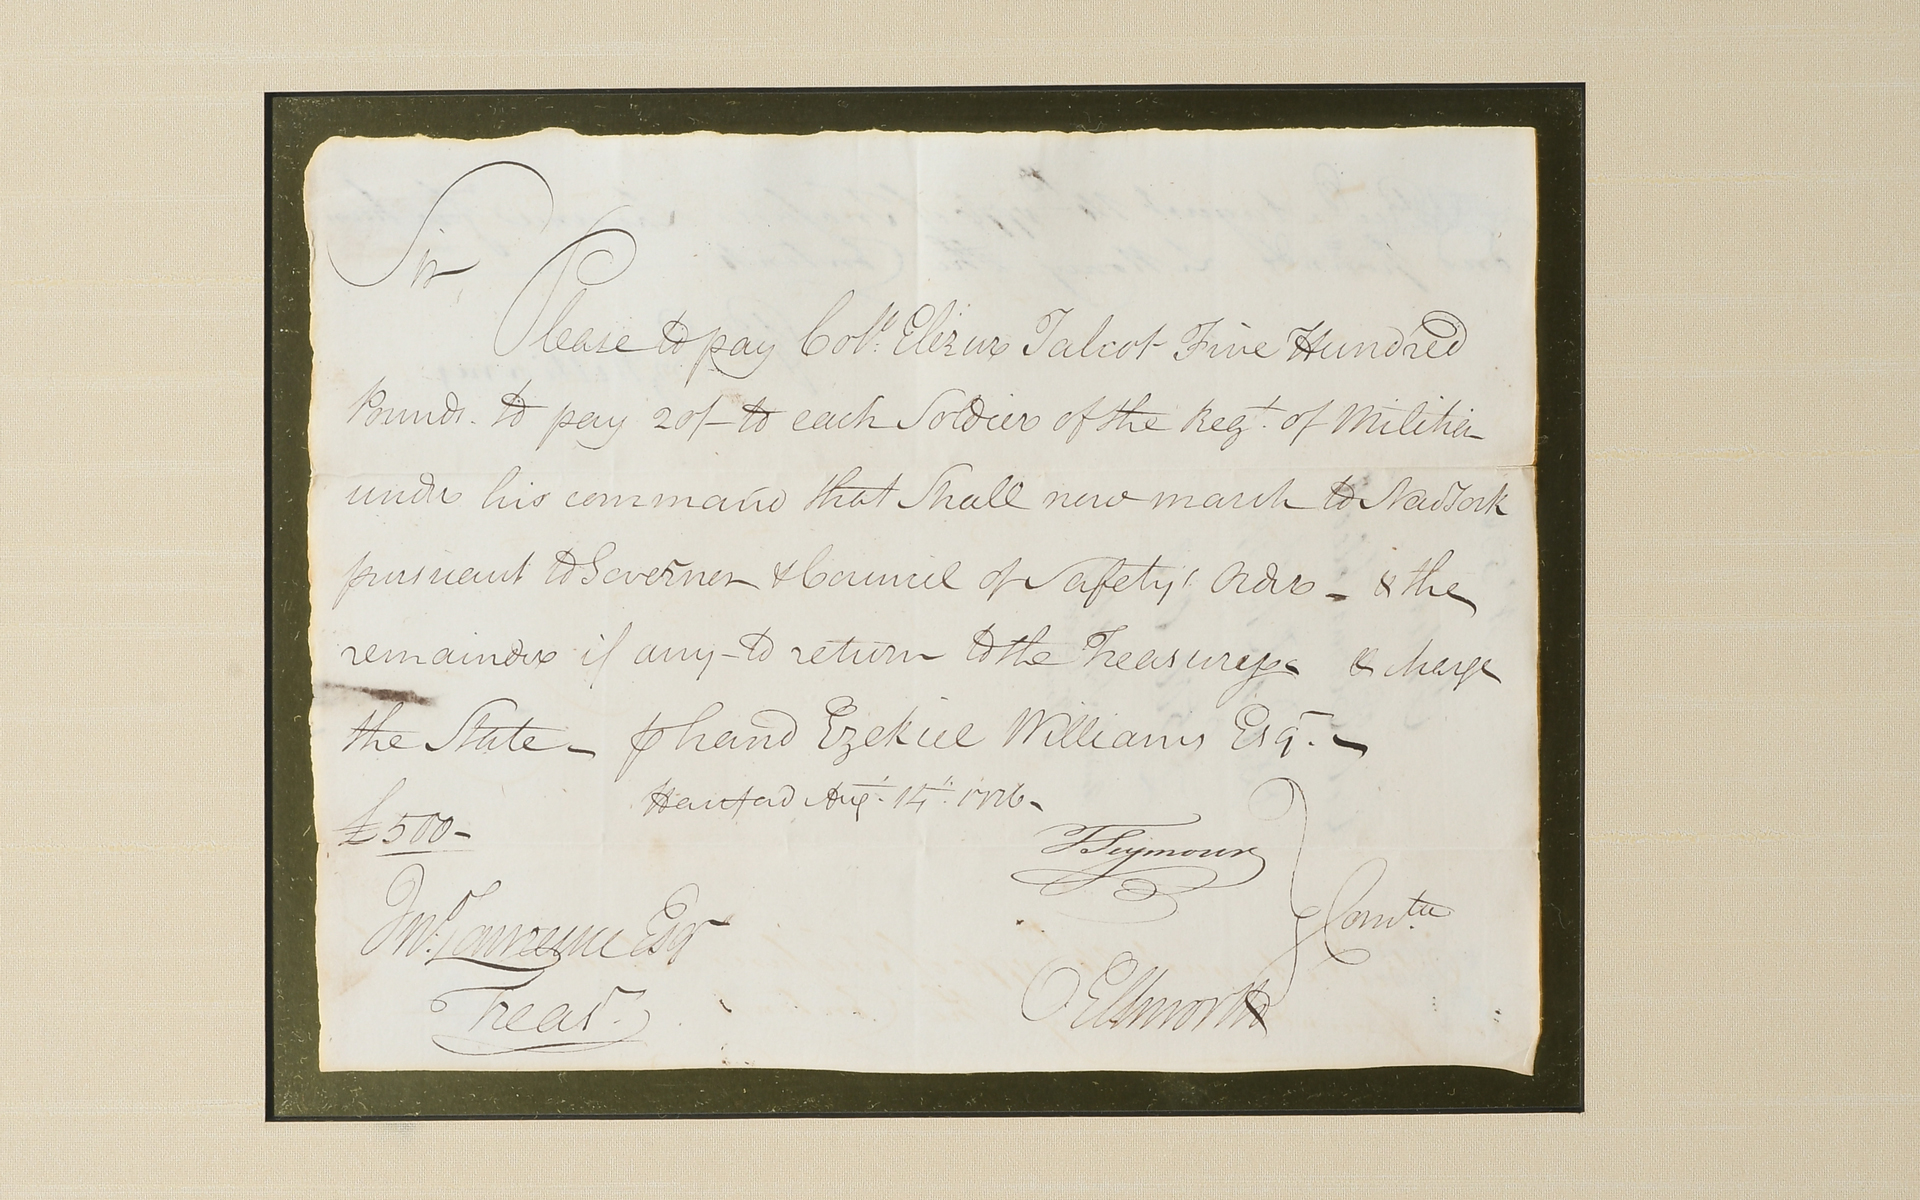 Sir
Please to pay Coll: Elizur Talcot Five Hundred
Pounds. to pay 20/- to each Soldier of the Regt. of Militia
under his command that Shall now march to NewYork
pursuant to Governor & Council of Safety's Order - & the
remainder if any - to return to the Treasury & charge
the State - ⅌ hand Ezekiel Williams Esqr. -
Hartford Augt. 14th. 1776 -
£500 -
TSeymour
Comtee
Jno. Lawrence Esqr
Treasr.
OEllsworth